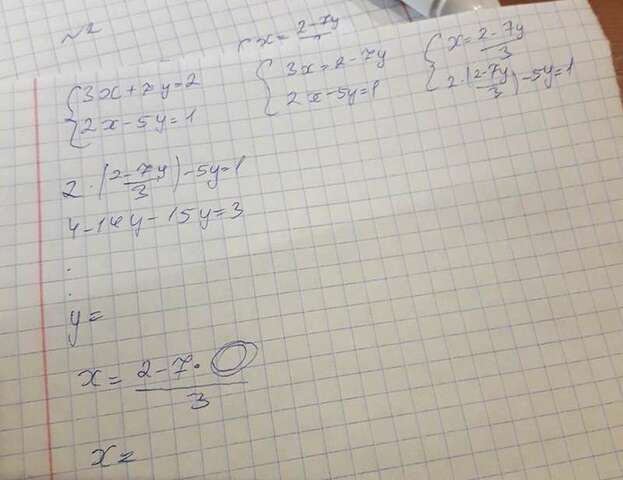 №2
x = 2-7y
{ 3x+7y=2
2x-5y=1
{ 3x=2-7y
2x-5y=1
{ x= 2-7y/3
2·(2-7y/3)-5y=1
2·(2-7y/3)-5y=1
4-14y-15y=3
.
.
y=
x= 2-7·/3
x=